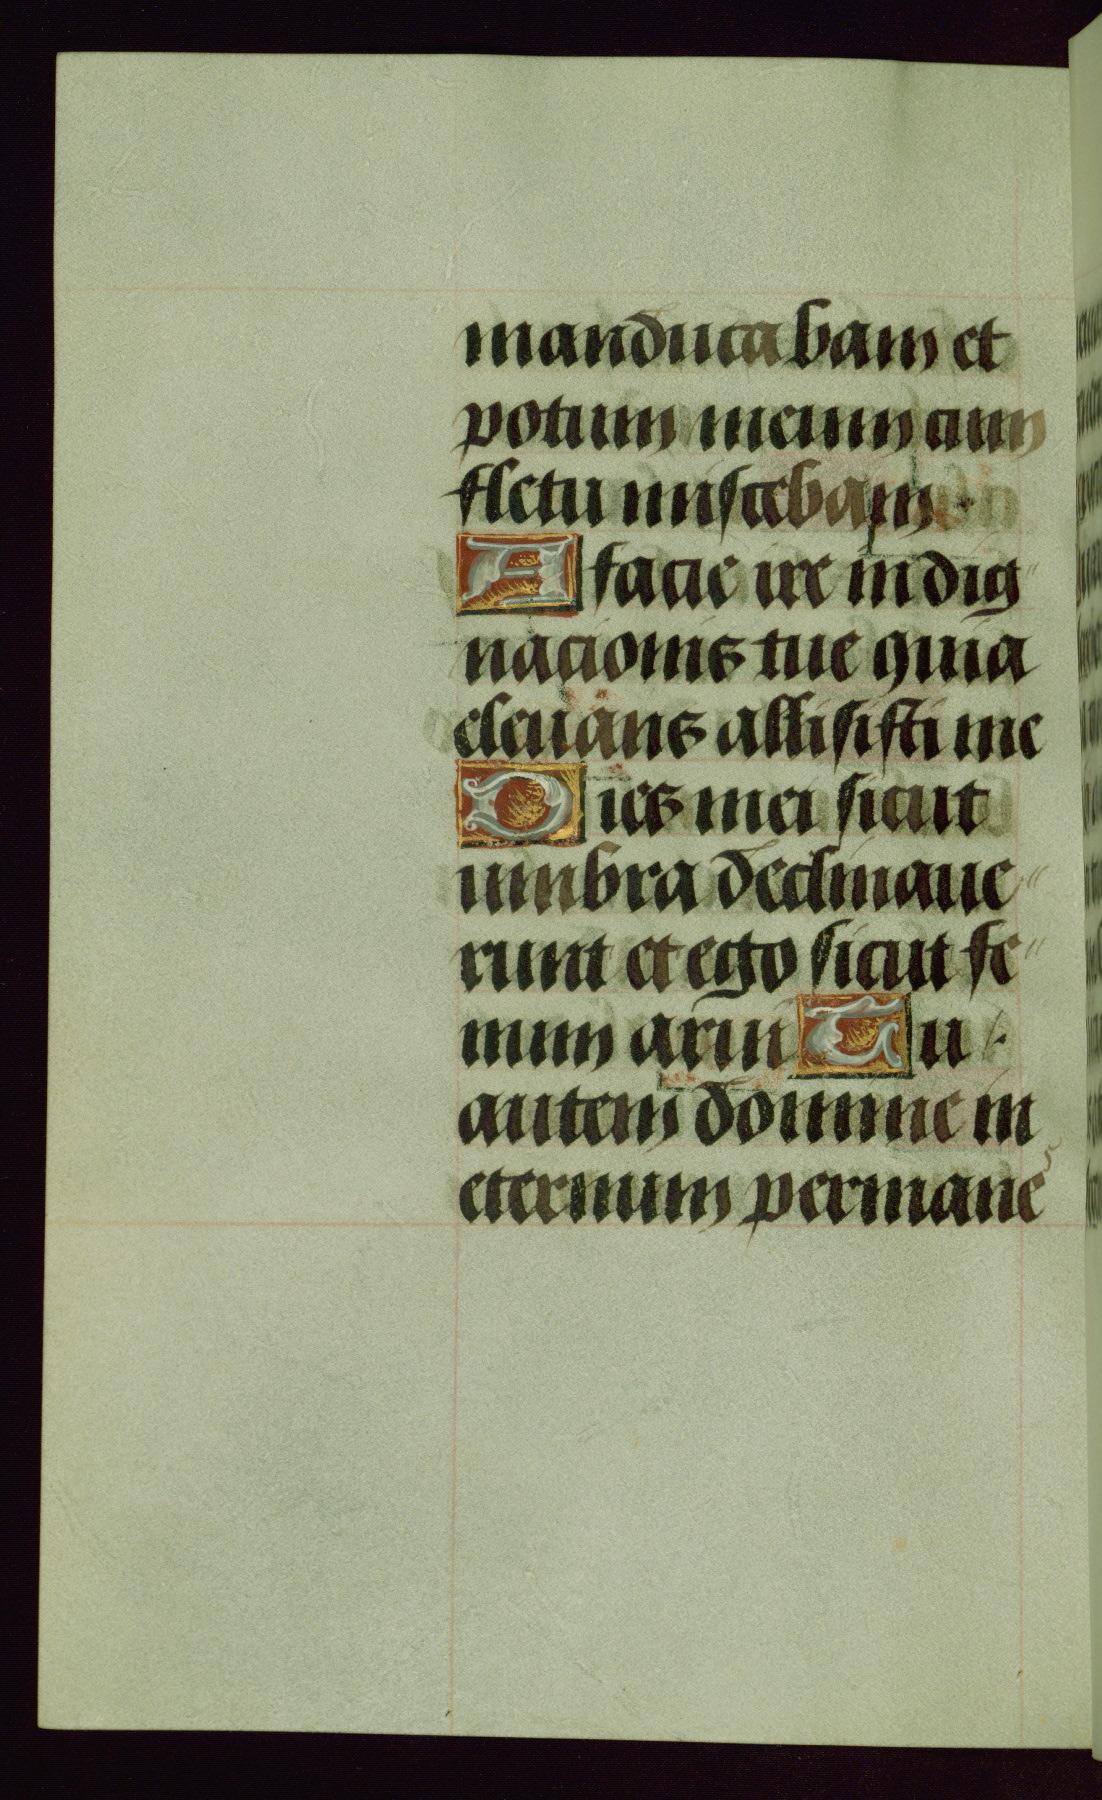 manducabam et
potum meum cum
fletu miscebam.
A facie ire indig"
nacionis tue quia
elevans allisisti me
Dies mei sicut
umbra declinaue"
runt et ego sicut fe"
num arui Tu
autem domine in
eternum permane